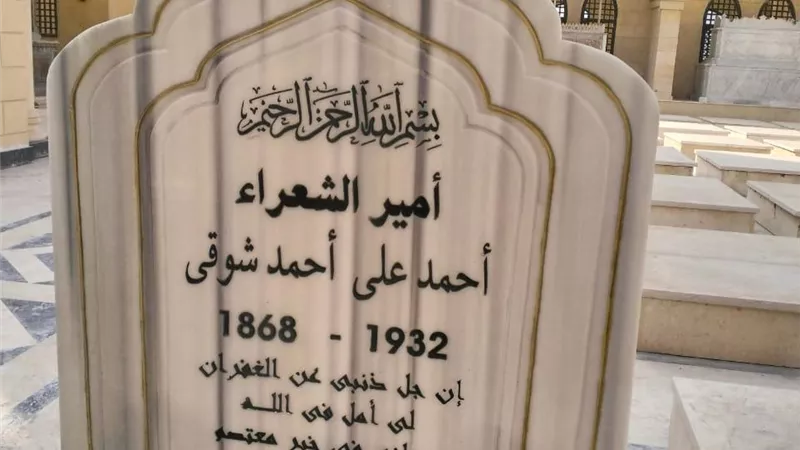 بسم الله الرحمن الرحيم
أمير الشعراء
أحمد على أحمد شوقى
1868 - 1932
إن جل ذنبى عن الغفران
لى أمل فى الله
فى خير معتصم